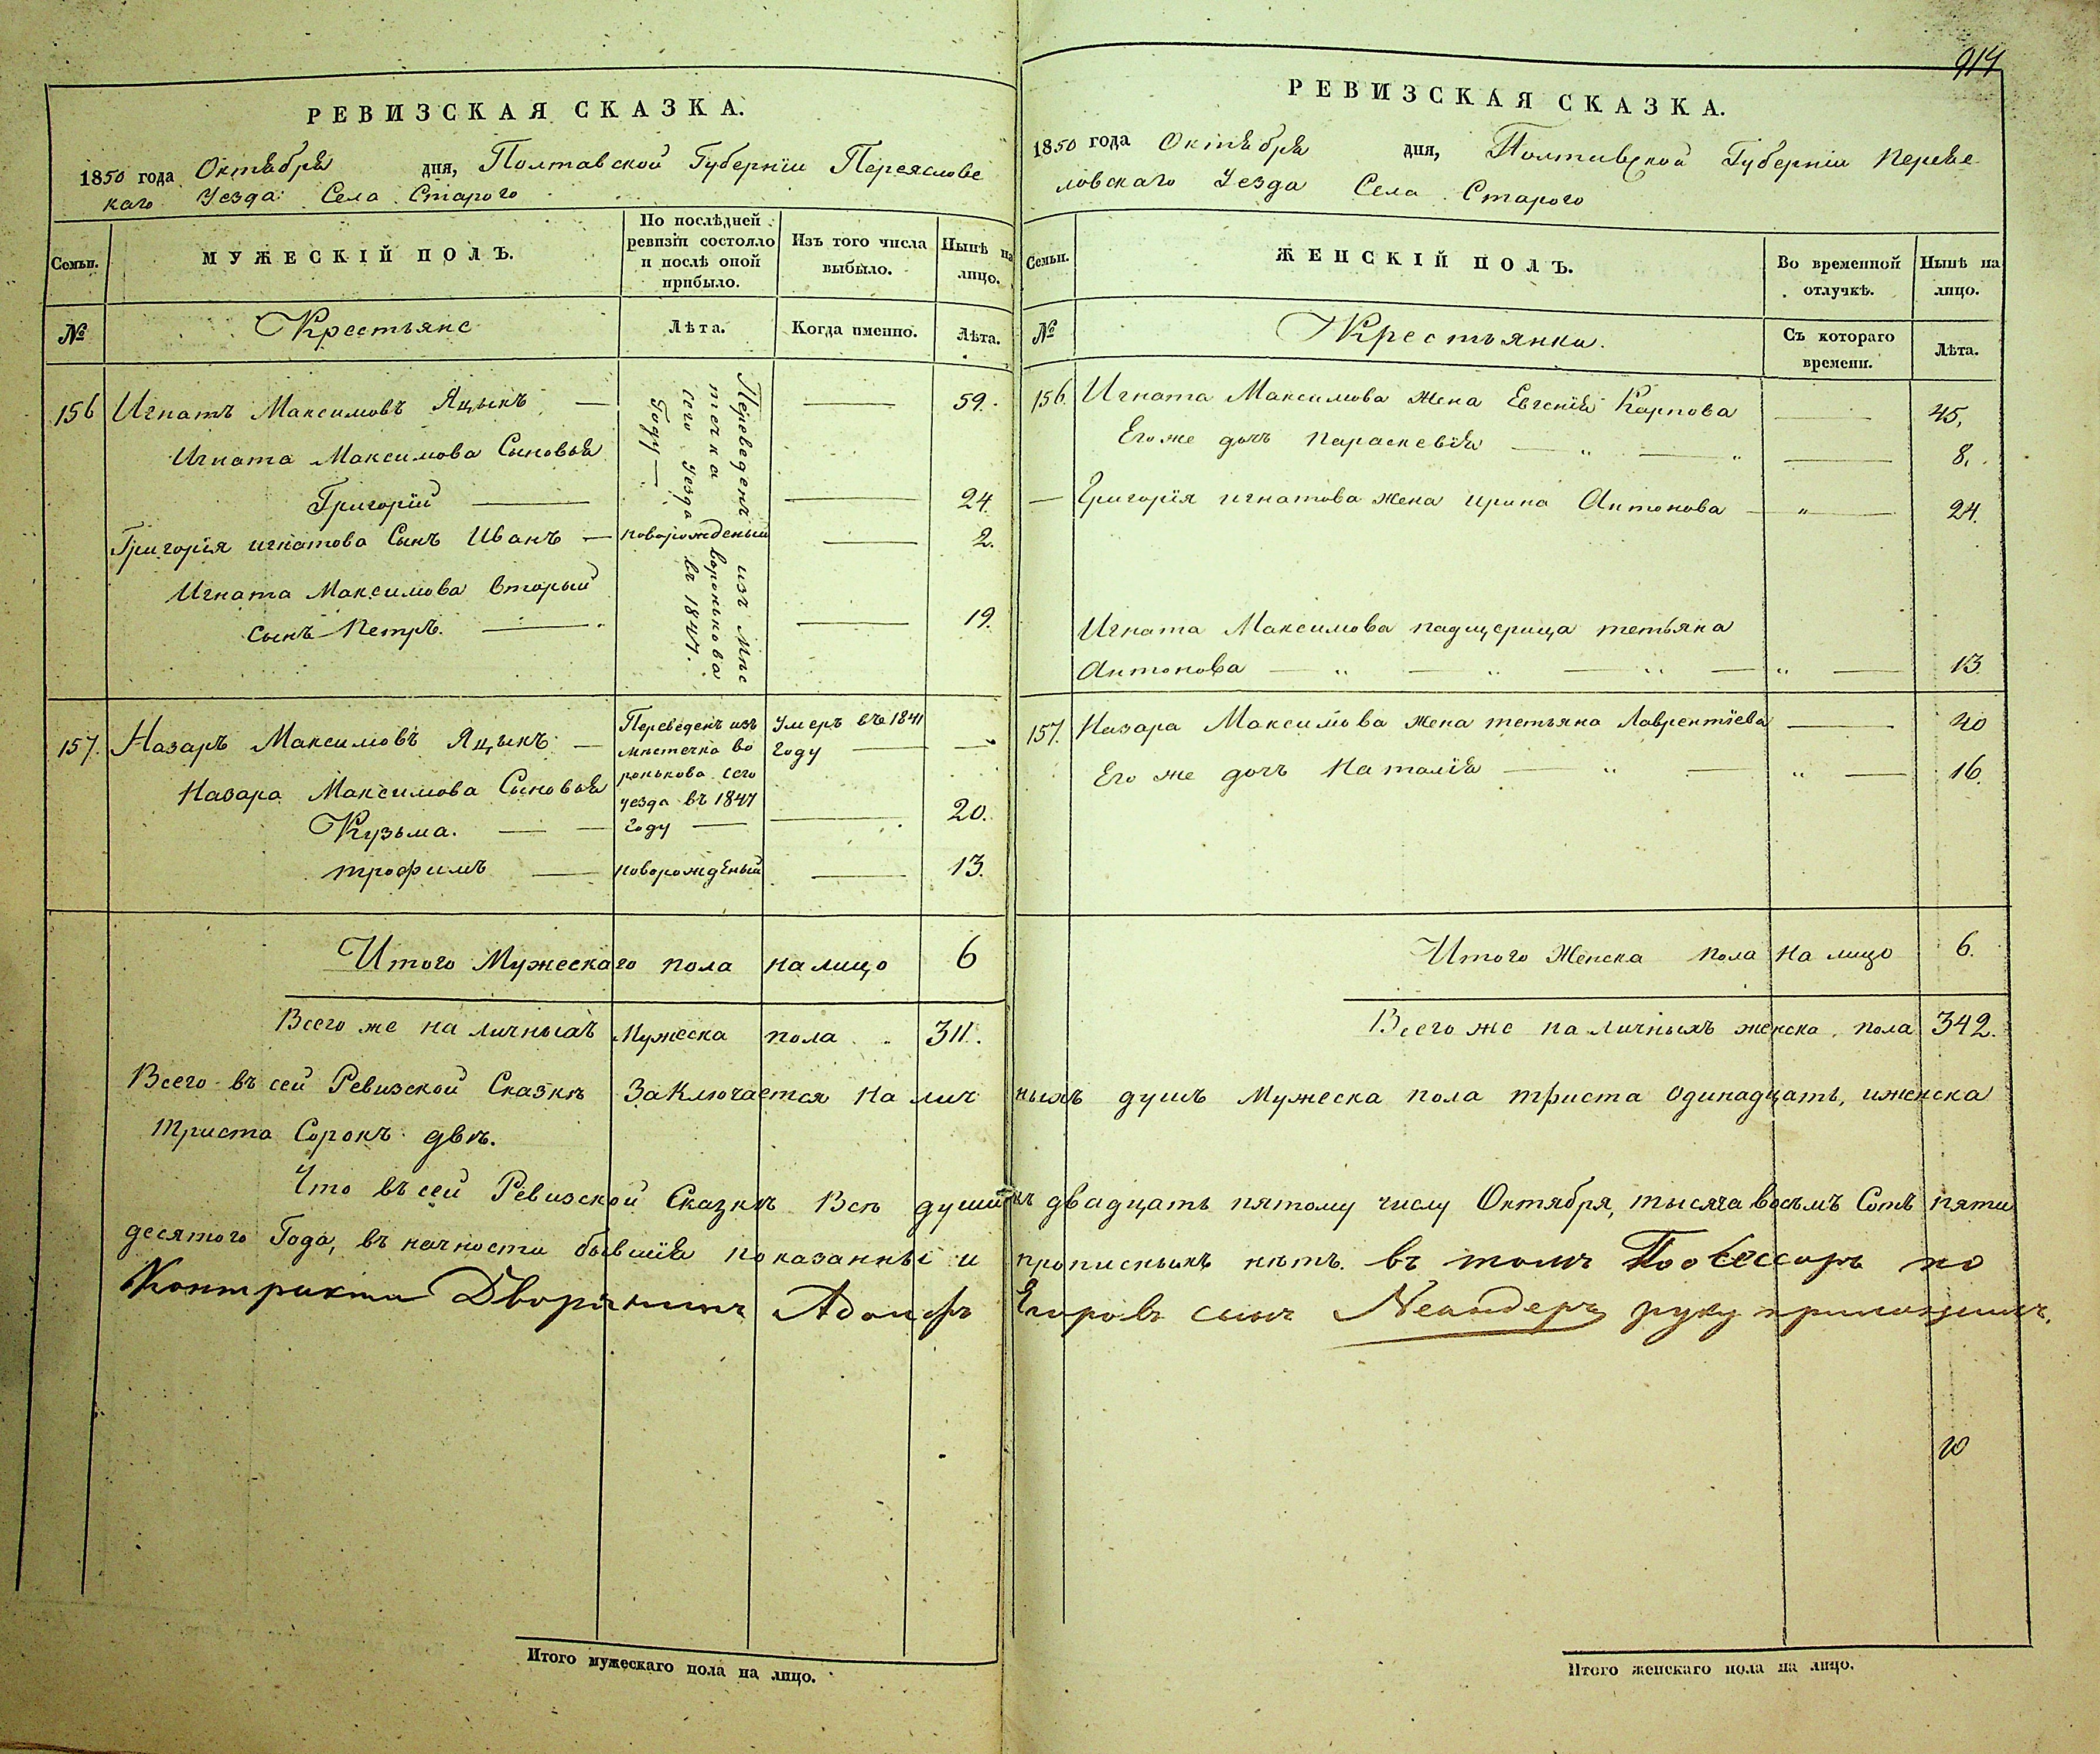 РЕВИЗСКАЯ СКАЗКА.
1850 года Октября дня, Полтавской Губернїи Переяслове
каго Уезда Села Старого
Семьи.
МУЖЕСКІЙ ПОЛЪ.
По послѣдней
ревизіи состояло
и послѣ оной
прибыло.
Изъ того числа
выбыло.
Нынѣ на
лицо.
№
Крестьяне
Лѣта.
Когда именно.
Лѣта.
156 Игнатъ Максимовъ Яцыкъ — 59.
Переведенъ изъ Мѣс
течка Воронькова
сего уезда въ 1847.
Году —
Игната Максимова Сыновья
Григорїй — 24.
Григорїя игнатова Сынъ Иванъ — новорожденый — 2.
Игната Максимова вторый
сынъ Петръ. — 19.
157. Назаръ Максимовъ Яцыкъ — Переведенъ изъ Умеръ въ 1841
мистечка Во Году —
Назара Максимова Сыновья ронькова сего
уезда въ 1847
Кузьма. — — Году — 20.
трофимъ — новорожденый — 13.
Итого Мужескаго пола на лицо 6
Всего же на личныхъ Мужеска пола 311.
Итого мужескаго пола на лицо.
914
РЕВИЗСКАЯ СКАЗКА.
1850 года Октября дня, Полтавской Губернїи Перея
ловскаго Уезда Села Старого
Семьи.
ЖЕНСКІЙ ПОЛЪ.
Во временной
отлучкѣ.
Нынѣ на
лицо.
№
Крестьянки.
Съ котораго
времени.
Лѣта.
156. Игната Максимова жена Евгенїя Карпова — 45.
Его же дочь Параскевїя — „ — „ — 8.
— Григорїя игнатова жена ирина Антонова — „ — 24.
Игната Максимова падщерица тетьяна
Антонова — „ — „ — „ — „ — 13
157. Назара Максимова жена тетьяна Лаврентїева — 40
Его же дочь Наталїя — „ — „ — 16.
Итого Женска пола на лицо 6.
Всего же на личныхъ женска пола 342.
Всего въ сей Ревизской Сказкѣ Заключается на лич ныхъ душъ Мужеска пола триста одинадцать, иженска
триста Сорокъ двѣ.
Что въ сей Ревизской Сказкѣ Всѣ души къ двадцать пятому числу Октября, тысяча восьмъ Сотъ пяти
десятого Года, въ начности бывшїя показанны и прописныхъ нѣтъ. въ томъ Посессоръ по
Контракту Дворянинъ Адольфъ Егоровъ сынъ Неандеръ руку приложилъ.
Итого женскаго пола на лицо.